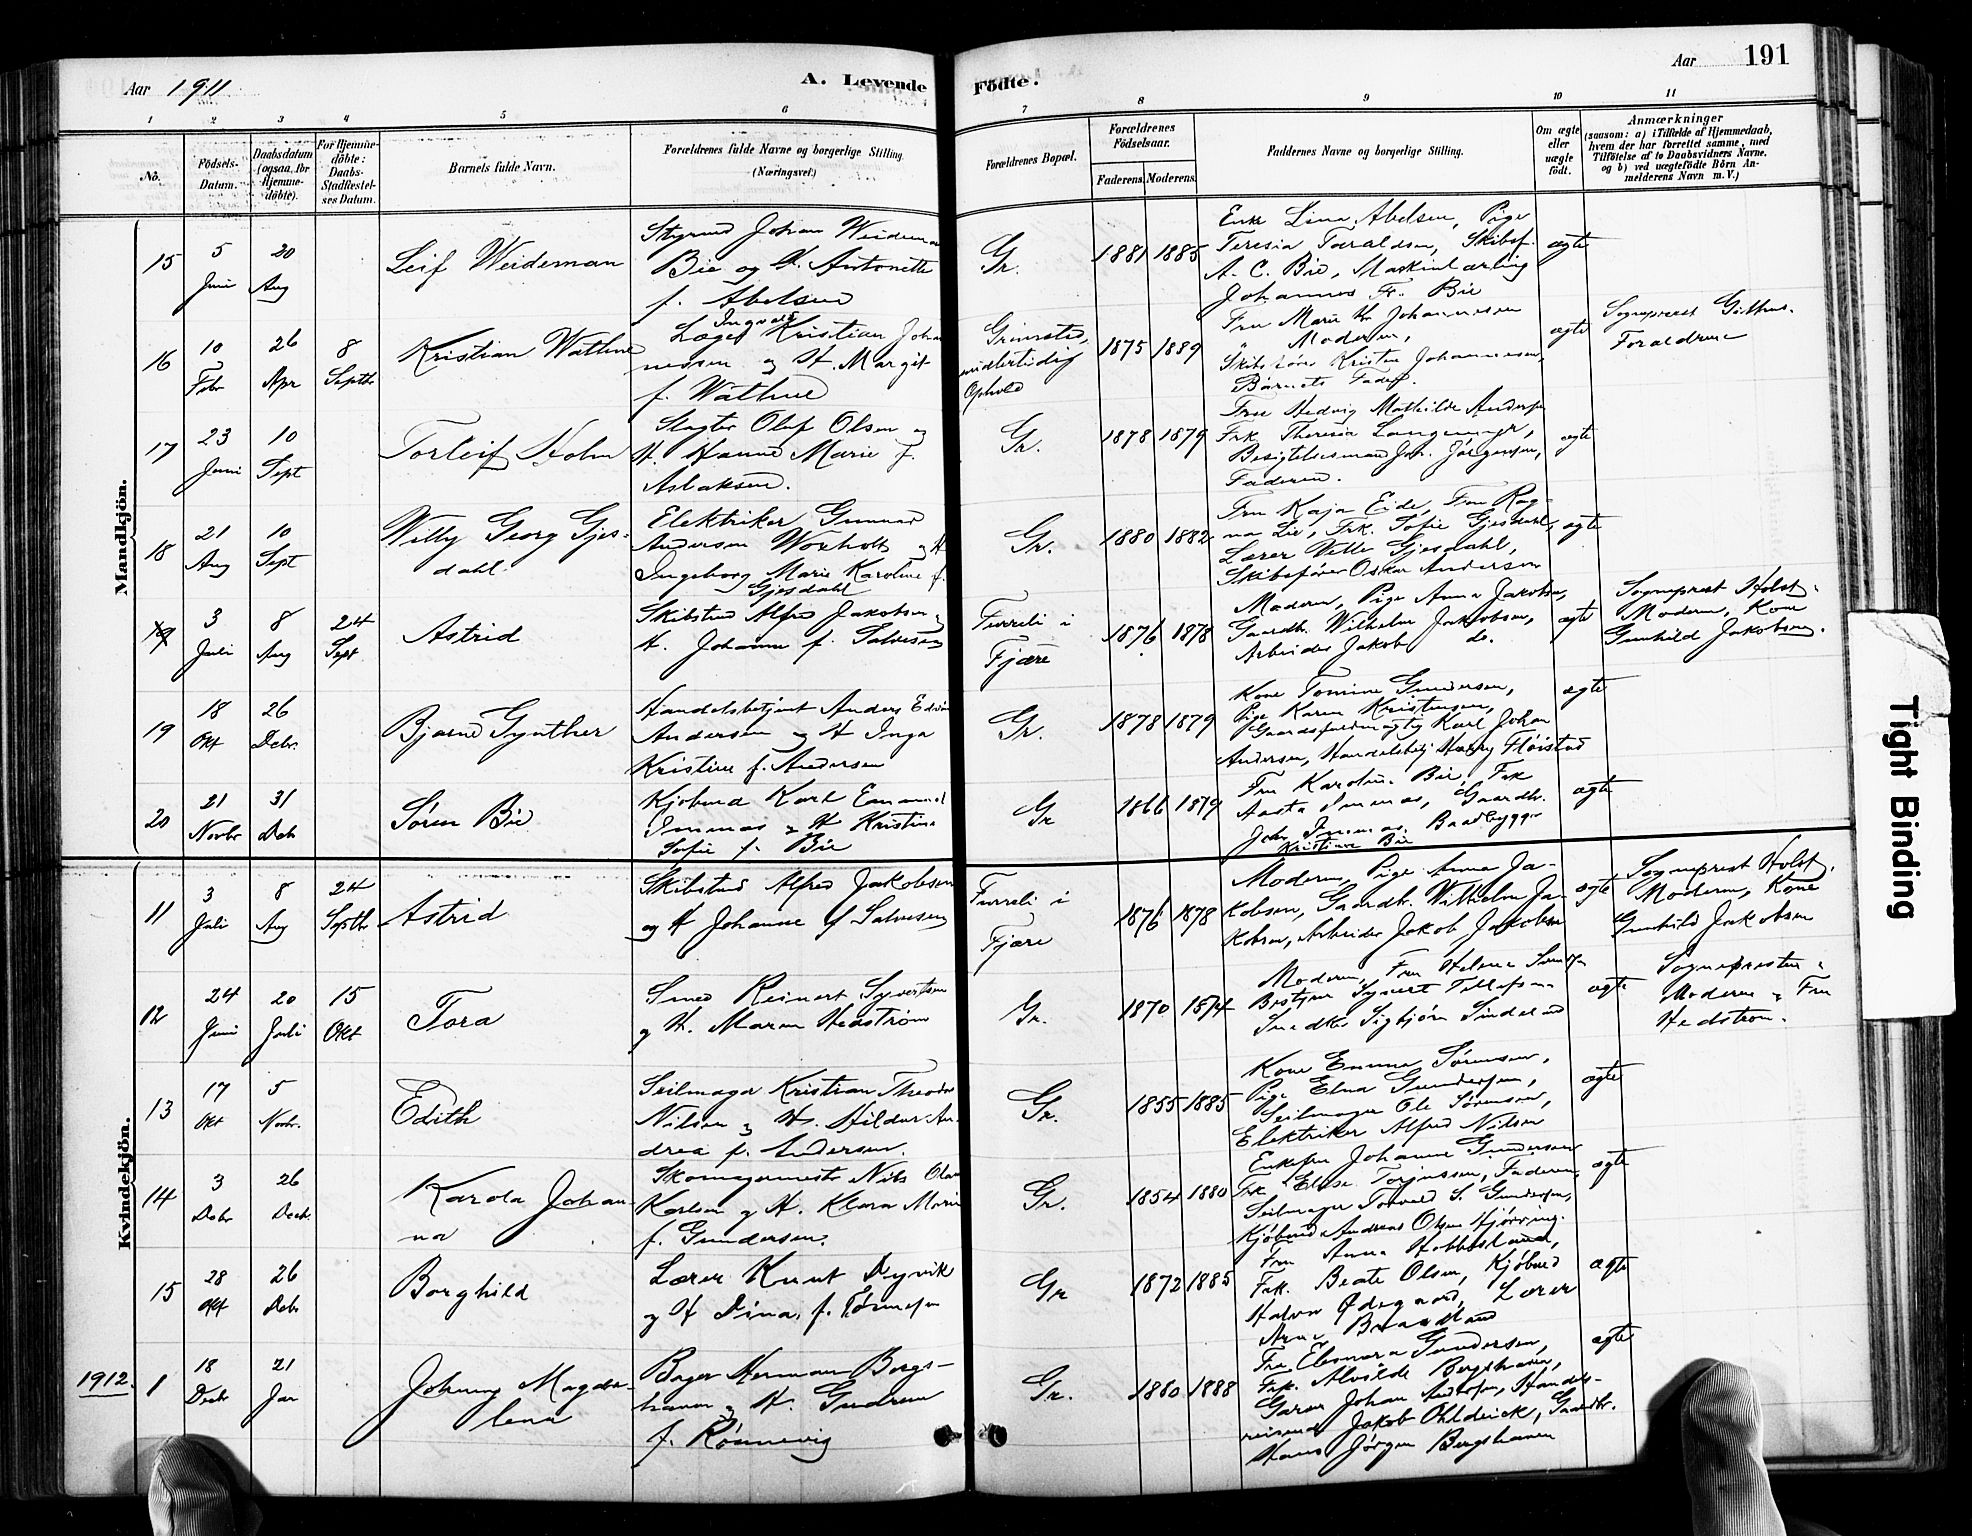 Aar 1911
A. Levende
Födte.
Aar 191
1 2 3 4 5 6 7 8 9 10 11
No.
Födsels-
Datum.
Daabsdatum
(ogsaa for
Hjemme-
döbte).
For Hjemme-
döbte:
Daabs-
Stadfestel-
ses Datum.
Barnets fulde Navn.
Forældrenes fulde Navne og borgerlige Stilling
(Næringsvei.)
Forældrenes Bopæl.
Forældrenes
Födselsaar.
Faderens. Moderens.
Faddernes Navne og borgerlige Stilling.
Om ægte
eller
uægte
födt.
Anmærkninger
(saasom: a) i Tilfælde af Hjemmedaab,
hvem der har forrettet samme, med
Tilföielse af to Daabsvidners Navne,
og b) ved uægtefödte Börn An-
melderens Navn m. V.)
Mandkjön.
15
5
Juni
20
Aug
Leif Weideman
Styrmd Johan Weideman
Bie og H. Antonette
f. Abelsen
Gr.
1881 1885
Enke Lina Abelsen, Pige
Teresia Taraldsen, Skibsf.
A. C. Bie, Maskinlærling
Johannes Fr. Bie
ægte
16
10
Febr
26
Apr
8
Septbr
Kristian Wathne
Ingvald
Læge Kristian Johan
nessen og H. Margit
f. Wathne
Grimstad,
midlertidig
Ophold
1875 1889
Fru Marie Johannesen
Moderen,
Skibsfører Kristen Johannesen,
Barnets Fader.
ægte
Sogneprest
Forældrene
17
23
Juni
10
Sept
Torleif Holm
Slagter Oluf Olsen og
H. Hanne Marie f.
Aslaksen.
Gr.
1878 1879
Fru Hedvig Mathilde Andersen
Frk Theresia
Besigtelsesmand Joh. Jørgensen,
Faderen.
ægte
18
21
Aug
10
Sept
Willy Georg Gjes-
dahl.
Elektriker Gunnar
Andersen Woxholt og H
Ingeborg Marie Karoline f.
Gjesdahl
Gr.
1880 1882
Fru Kaja Eide, Fru Rag-
na Lie, Frk. Sofie Gjesdahl,
Lærer Gjesdahl,
Skibsfører Oskar Andersen
ægte
19
3
Juli
8
Aug
24
Sept
Astrid
Skibstmd Alfred Jakobsen og
H. Johanne f. Salvesen
Furreli i
Fjære
1876 1878
Moderen, Pige Anna Jakobsen,
Gaardb. Wilhelm Jakobsen,
Arbeider Jakob do.
ægte
Sogneprest Holst.
Moderen, Kone
Gunhild Jakobsen.
19
18
Okt
26
Debr.
Bjarne Gynther
Handelsbetjent Anders Edvin
Andersen og H Inga
Kristine f. Andersen
Gr.
1878 1879
Kone Tomine Gundersen,
Pige Karen Kristensen,
Gaardsfuldmægtig Karl Johan
Andersen, Handelsbetj. Harry Fløistad
ægte
20
21
Novbr
31
Deb
Søren Bie
Kjøbmd Karl Emanuel
Immas og H Kristine
Sofie f. Bie
Gr
1866 1879
Fru Karoline Bie, Frk
Aasta Immas, Gaardbr.
Immas, Baadbygger
Kristian Bie
ægte
Kvindekjön.
11
3
Juli
8
Aug
24
Septbr
Astrid
Skibstmd Alfred Jakobsen
og H Johanne f Salvesen
Furreli i
Fjære
1876 1878
Moderen, Pige Anna Ja-
kobsen, Gaardb. Wilhelm Ja-
kobsen, Arbeider Jakob Jakobsen
ægte
Sogneprest Holst.
Moderen, Kone
Gunhild Jakobsen
12
24
Juni
20
Juli
15
Okt
Tora
Smed Reinert Syvertsen
og H. Maren Hedstrøm
Gr.
1870 1874
Moderen, Fru Helene
Bestyrer Syvert Tellefsen
Snedker Sigbjørn
ægte
Sognepresten
Moderen og Fru
Hedstrøm.
13
17
Okt
5
Novbr.
Edith
Seilmager Kristian Theodor
Nilsen og H. Hildur An-
drea f. Andersen.
Gr.
1855 1885
Kone Emma Sørensen,
Pige Elna Gundersen,
Seilmager Ole Sørensen,
Elektriker Alfred Nilsen
ægte
14
3
Debr
26
Decb.
Karola Johan
na
Skomagermester Nils Olav
Karlsen og H. Klara Marie
f. Gundersen.
Gr.
1854 1880
Enkefru Johanne Gundersen
Frk Elise Torjussen, Faderen,
Seilmager Torvald S. Gundersen,
Kjøbmd Andreas Olsen Hjørring.
ægte
15
28
Okt
26
Debr
Borghild
Lærer Knut Dyvik
og H Dina, f. Tønnesen
Gr
1872 1885
Fru Anna
Frk. Beate Olsen, Kjøbmd
Halvor Ødegaard, Lærer
ægte
1912.
1
18
Decbr
21
Jan
Johnny Magda-
lena
Bager Herman Bergs-
haven og H. Gudrun
f. Rønnevig
Gr.
1880 1888
Fru Eleonora Gundersen,
Frk. Alvilde Bergshaven,
Garver Johan Andersen, Handels-
reisend Jakob Ohldeick, Gaardbr.
Hans Jørgen Bergshaven
ægte
Tight Binding